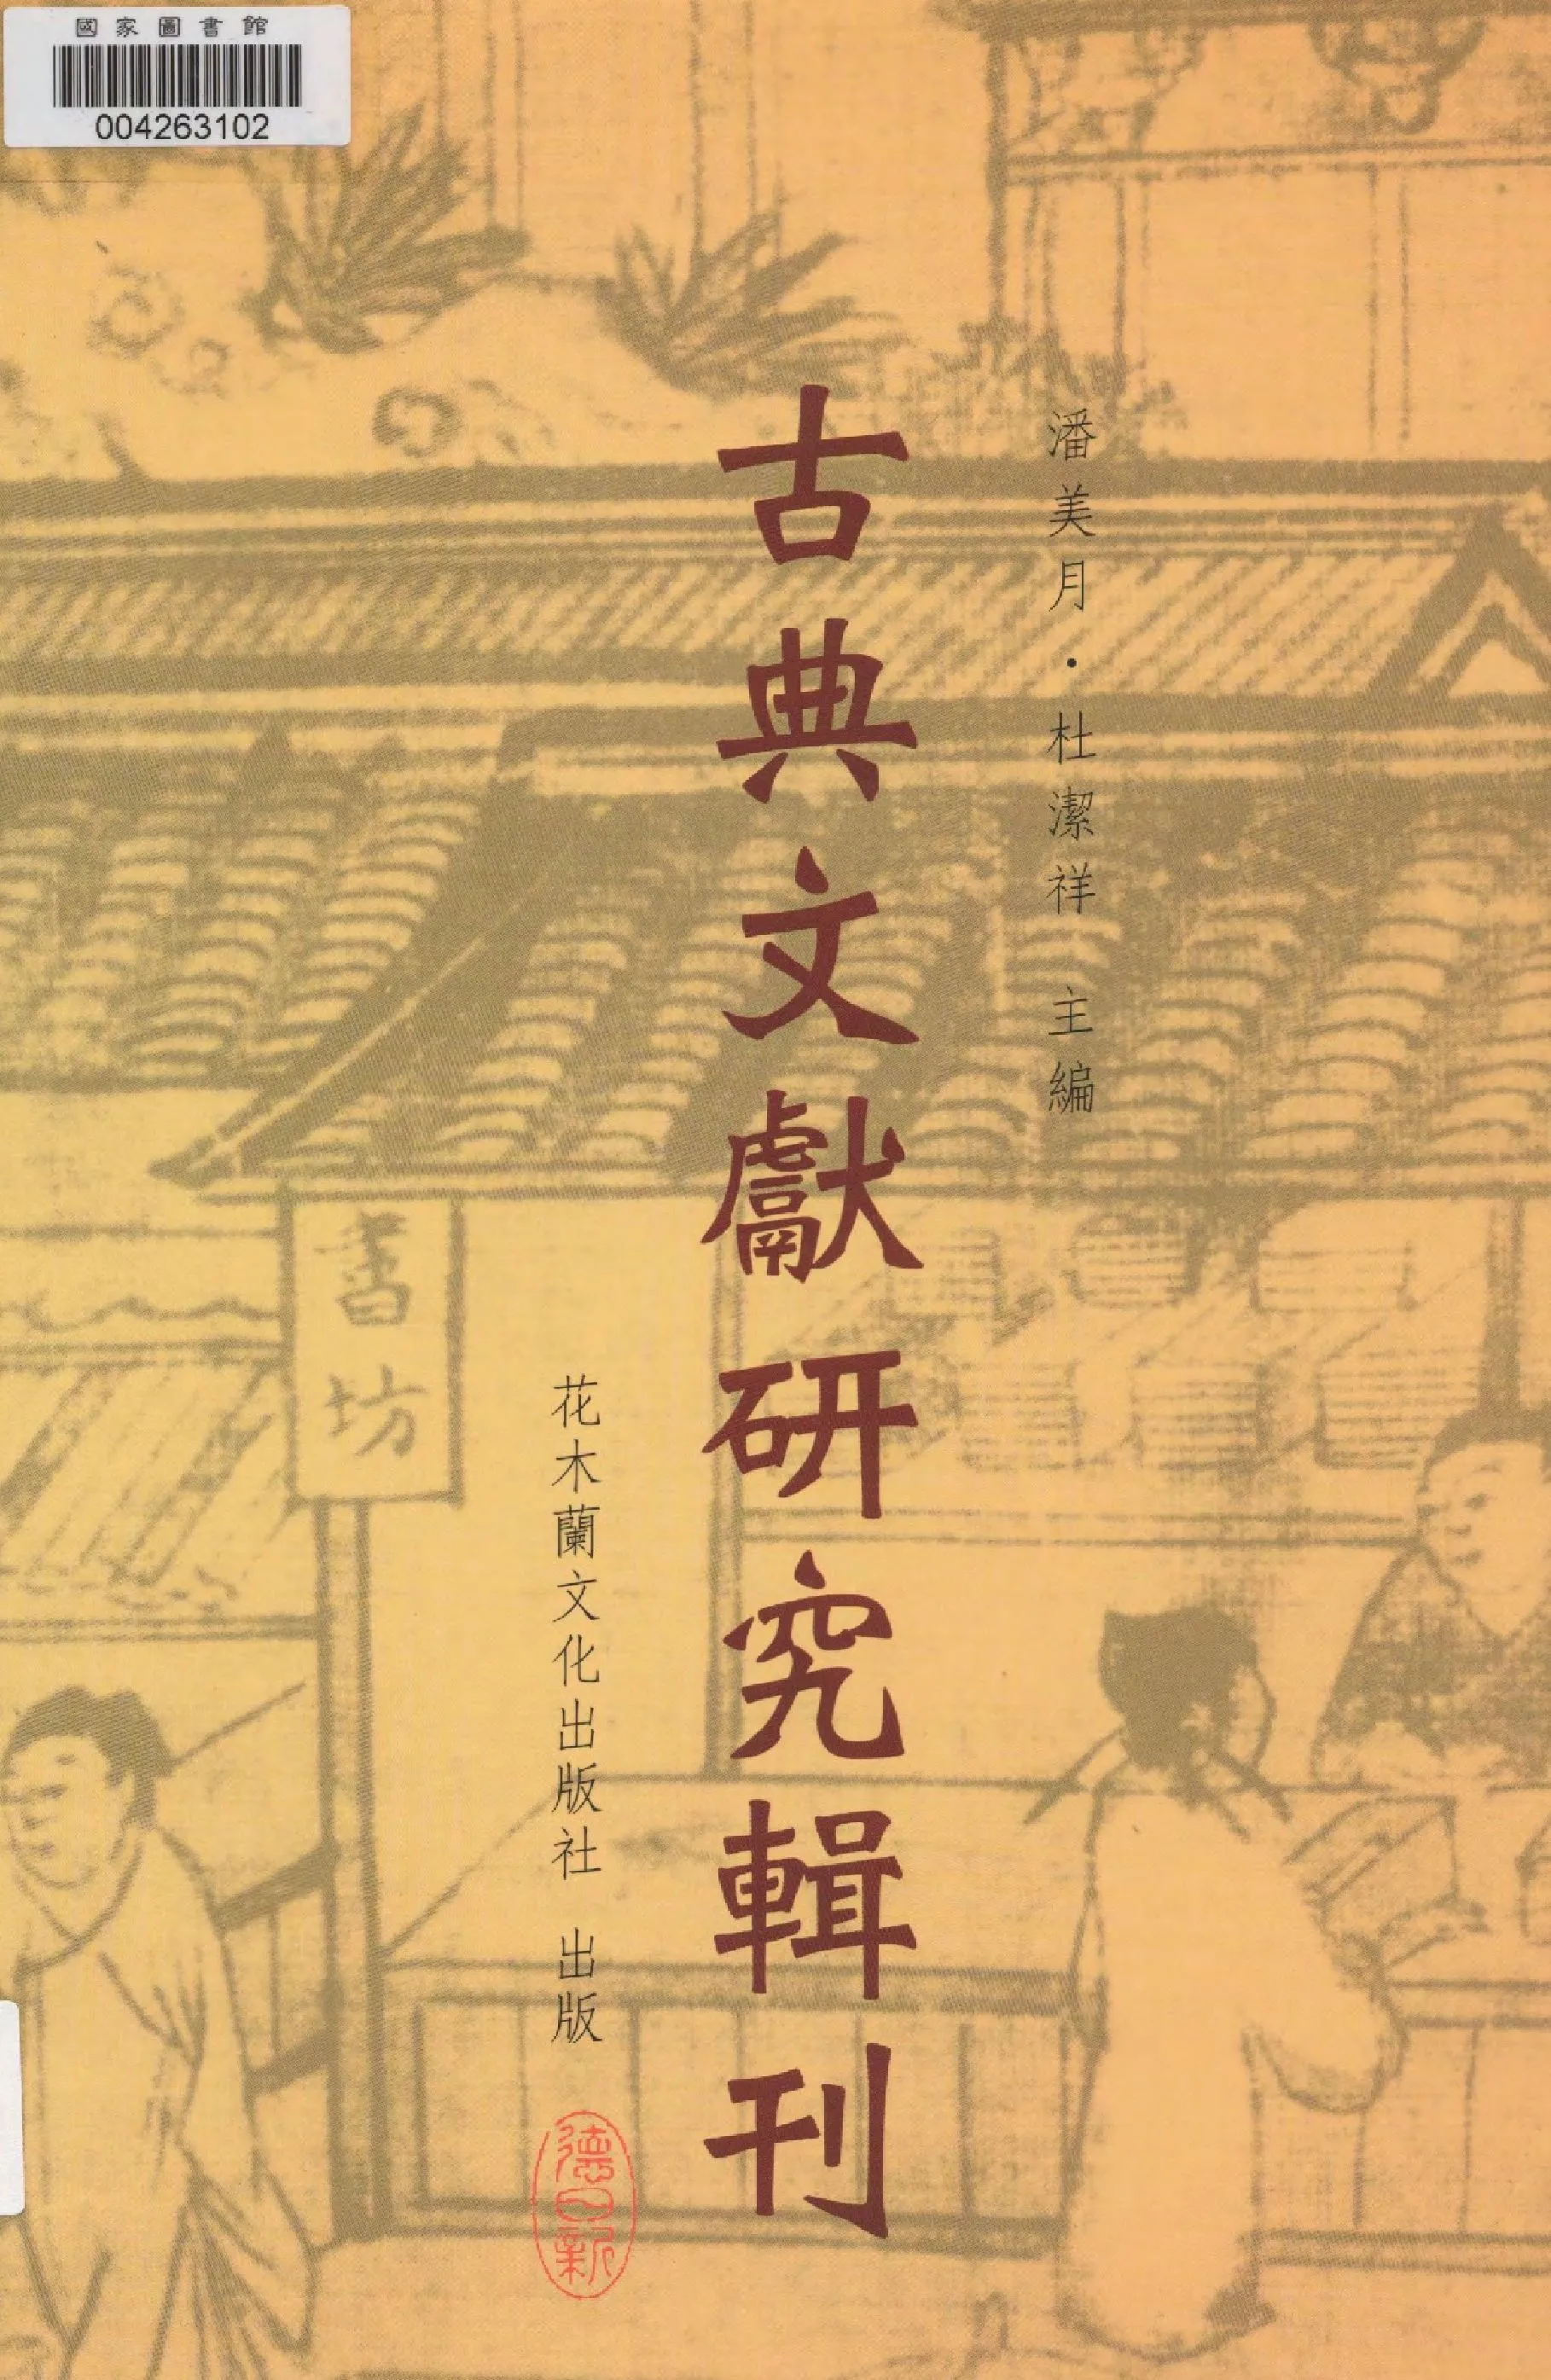 國家圖書館
004263102
潘美月・杜潔祥 主編
古典文獻研究輯刊
書坊
花木蘭文化出版社 出版
德日新